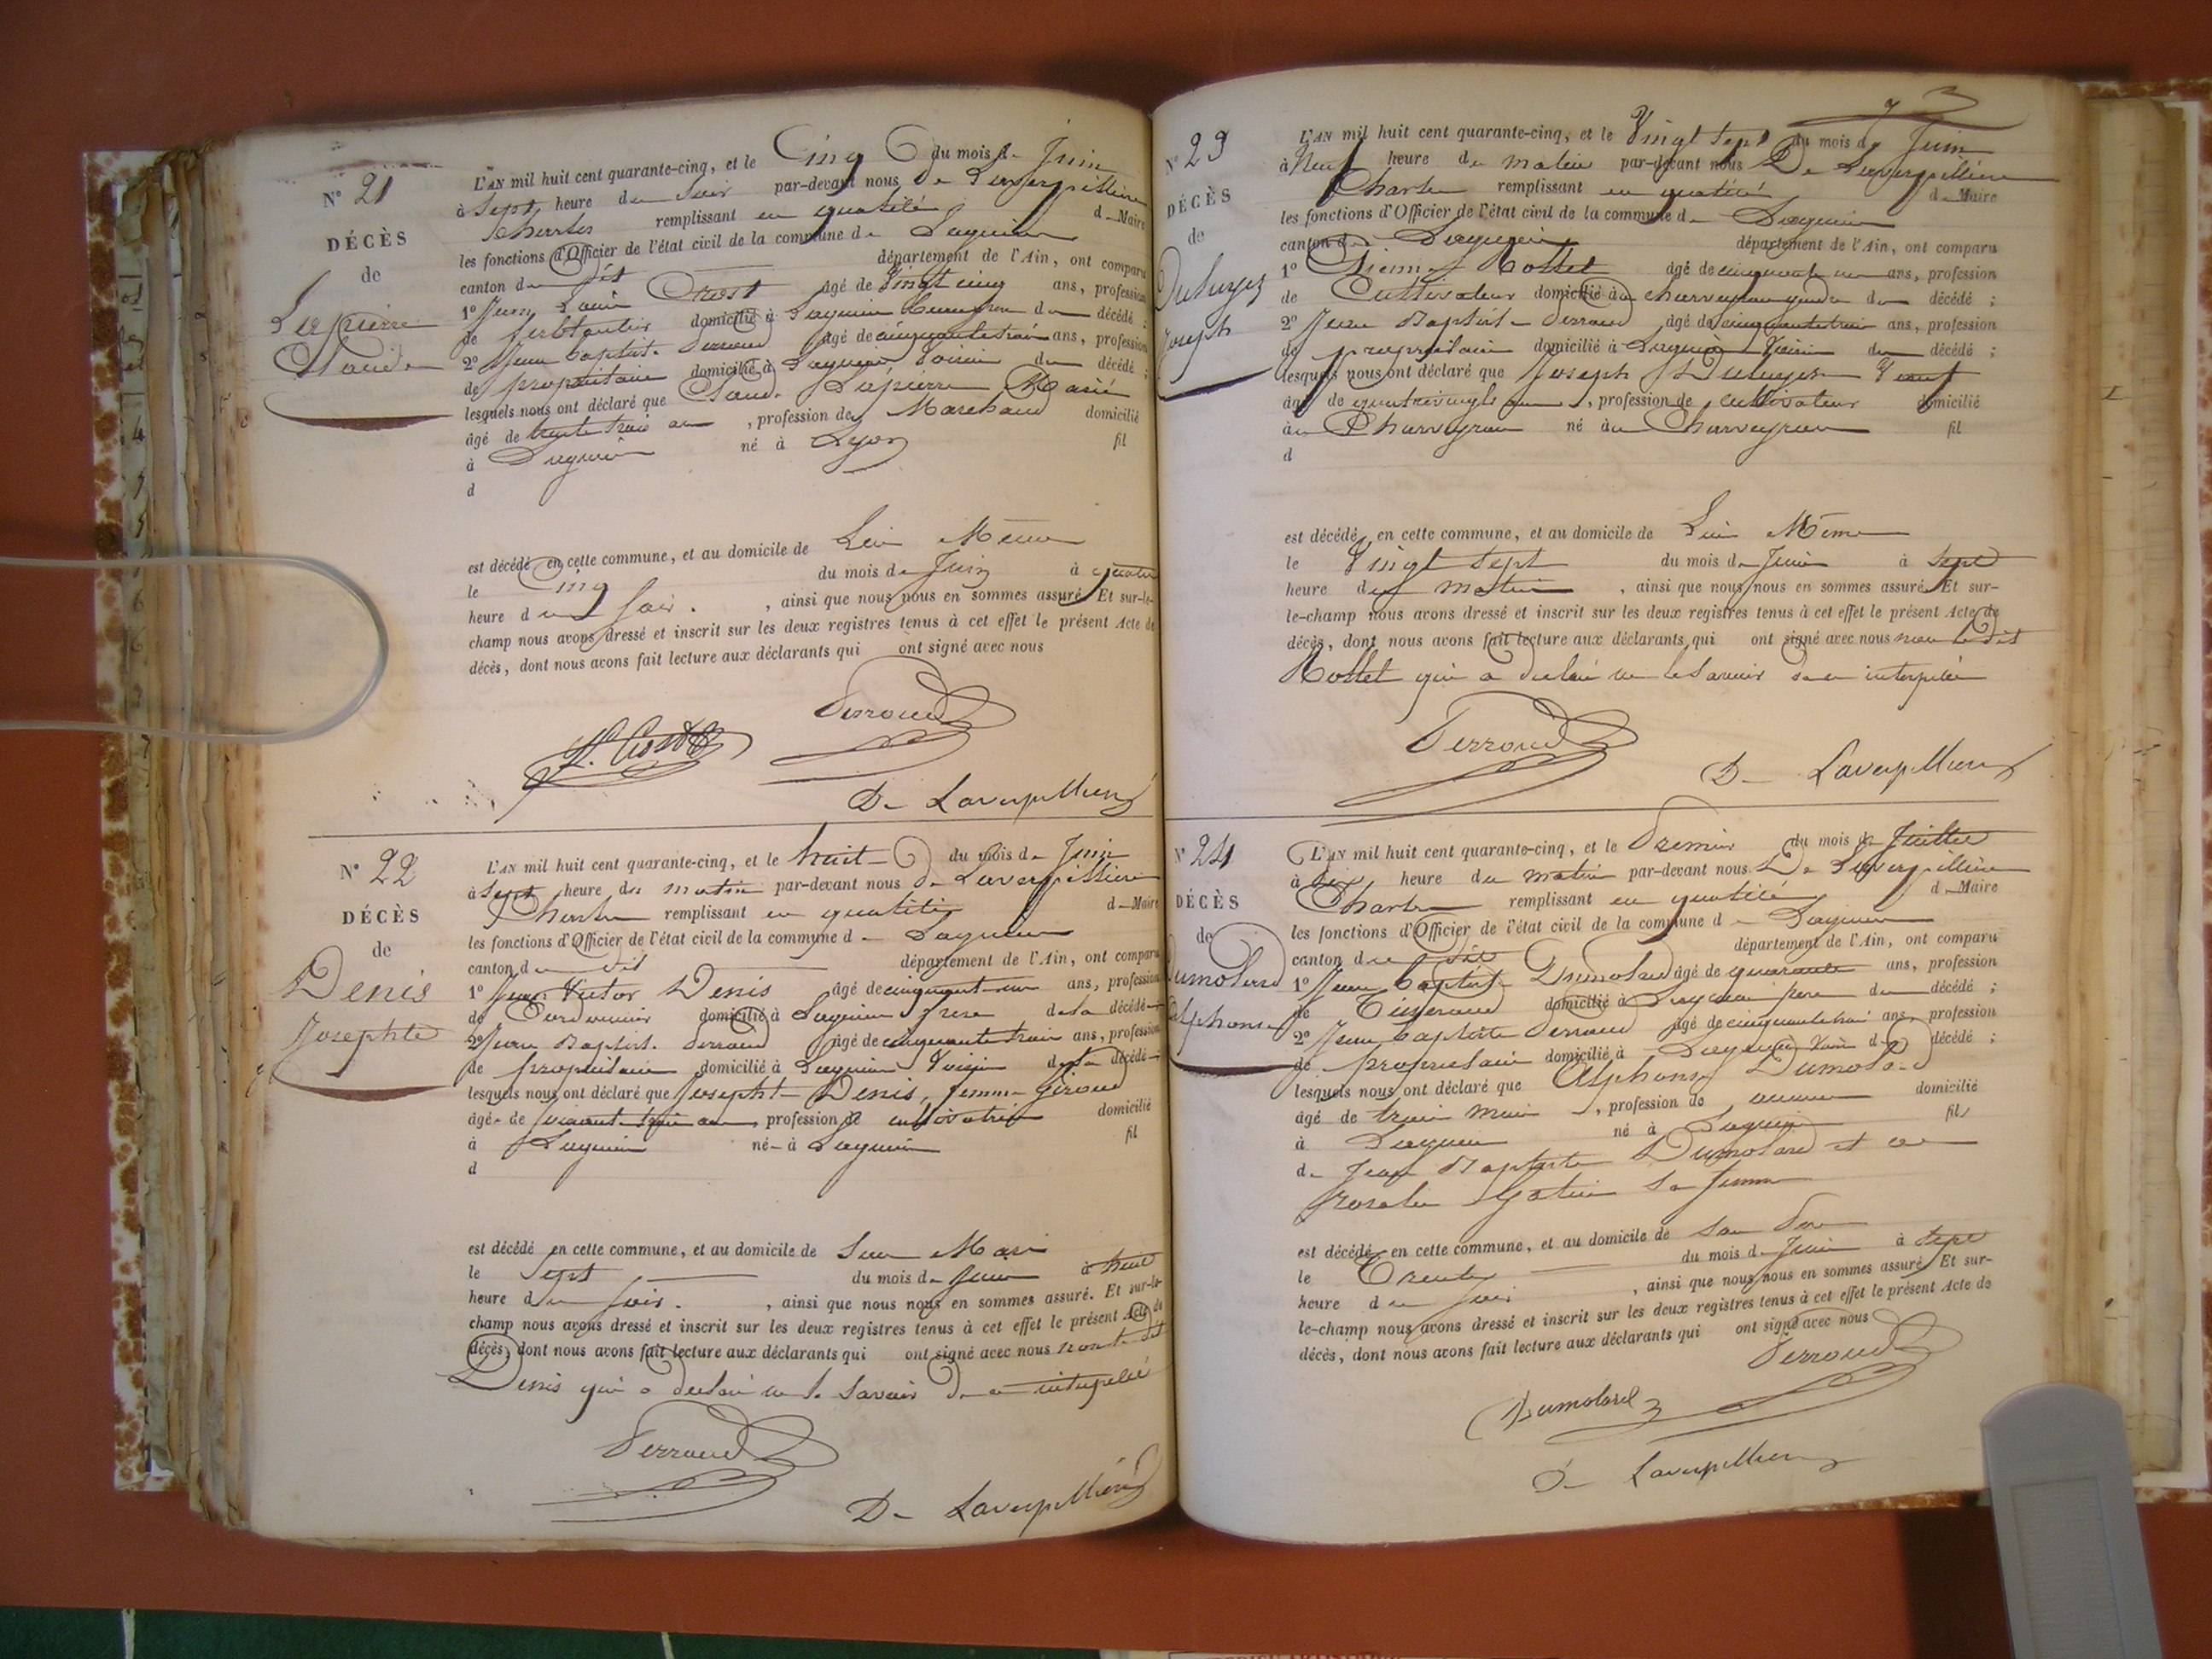 N° 21
DÉCÈS
de
Lapierre
Claude
L'AN mil huit cent quarante-cinq, et le Cinq du mois de Juin
à Sept heure du Soir par-devant nous De Laverpillière
Charles remplissant en qualité de Maire
les fonctions d'Officier de l'état civil de la commune de Lagnieu
canton du dit département de l'Ain, ont comparu
1° Jean Louis Crost âgé de Vingt cinq ans, profession
de ferblantier domicilié à Lagnieu du décédé ;
2° Jean Baptiste Perroud âgé de cinquante trois ans, profession
de propriétaire domicilié à Lagnieu Voisin du décédé ;
lesquels nous ont déclaré que Claude Lapierre Marié
âgé de trente trois ans, profession de Marchand domicilié
à Lagnieu né à Lyon fil
d
est décédé en cette commune, et au domicile de Lui Même
le Cinq du mois de Juin à quatre
heure du Soir. , ainsi que nous nous en sommes assuré. Et sur-le-
champ nous avons dressé et inscrit sur les deux registres tenus à cet effet le présent Acte de
décès, dont nous avons fait lecture aux déclarants qui ont signé avec nous
Perroud
L. Crost
De Laverpillière
N° 22
DÉCÈS
de
Denis
Josephte
L'AN mil huit cent quarante-cinq, et le huit du mois de Juin
à Sept heure du matin par-devant nous de Laverpillière
Charles remplissant en qualité de Maire
les fonctions d'Officier de l'état civil de la commune de Lagnieu
canton du dit département de l'Ain, ont comparu
1° Jean Victor Denis âgé de cinquante un ans, profession
de Cordonnier domicilié à Lagnieu frère de la décédé
2° Jean Baptiste Perroud âgé de cinquante trois ans, profession
de propriétaire domicilié à Lagnieu Voisin de la décédé
lesquels nous ont déclaré que Josephte Denis, femme Giroud
âgé de ans, profession de cultivatrice domicilié
à Lagnieu né à Lagnieu fil
d
est décédé en cette commune, et au domicile de Son Mari
le Sept du mois de Juin à
heure du Soir. , ainsi que nous nous en sommes assuré. Et sur-le-
champ nous avons dressé et inscrit sur les deux registres tenus à cet effet le présent Acte de
décès, dont nous avons fait lecture aux déclarants qui ont signé avec nous non le dit
Denis qui a déclaré ne le savoir de ce interpellé
Perroud
De Laverpillière
N° 23
DÉCÈS
de
Joseph
L'AN mil huit cent quarante-cinq, et le Vingt Sept du mois de Juin
à Neuf heure du matin par-devant nous De Laverpillière
Charles remplissant en qualité de Maire
les fonctions d'Officier de l'état civil de la commune de Lagnieu
canton de Lagnieu département de l'Ain, ont comparu
1° Mollet âgé de cinquante un ans, profession
de Cultivateur domicilié au Charveyron gendre du décédé ;
2° Jean Baptiste Perroud âgé de cinquante trois ans, profession
de propriétaire domicilié à Lagnieu Voisin du décédé ;
lesquels nous ont déclaré que Joseph Veuf
âgé de quatrevingts ans, profession de cultivateur domicilié
au Charveyron né au Charveyron fil
d
est décédé en cette commune, et au domicile de Lui Même
le Vingt Sept du mois de Juin à Sept
heure du matin , ainsi que nous nous en sommes assuré. Et sur-
le-champ nous avons dressé et inscrit sur les deux registres tenus à cet effet le présent Acte de
décès, dont nous avons fait lecture aux déclarants qui ont signé avec nous non le dit
Mollet qui a déclaré ne le savoir de ce interpellé
Perroud
De Laverpillière
N° 24
DÉCÈS
de
Dumolard
Alphonse
L'AN mil huit cent quarante-cinq, et le Premier du mois de Juillet
à dix heure du matin par-devant nous De Laverpillière
Charles remplissant en qualité de Maire
les fonctions d'Officier de l'état civil de la commune de Lagnieu
canton du dit département de l'Ain, ont comparu
1° Jean Baptiste Dumolard âgé de quarante ans, profession
de Tisserand domicilié à Lagnieu père du décédé ;
2° Jean Baptiste Perroud âgé de cinquante trois ans, profession
de propriétaire domicilié à Lagnieu Voisin du décédé ;
lesquels nous ont déclaré que Alphonse Dumolard
âgé de trois mois , profession de aucune domicilié
à Lagnieu né à Lagnieu fils
de Jean Baptiste Dumolard et de
Rosalie sa femme
est décédé en cette commune, et au domicile de son Père
le Trente du mois de Juin à Sept
heure du Soir , ainsi que nous nous en sommes assuré. Et sur-
le-champ nous avons dressé et inscrit sur les deux registres tenus à cet effet le présent Acte de
décès, dont nous avons fait lecture aux déclarants qui ont signé avec nous
Perroud
Dumolard
De Laverpillière